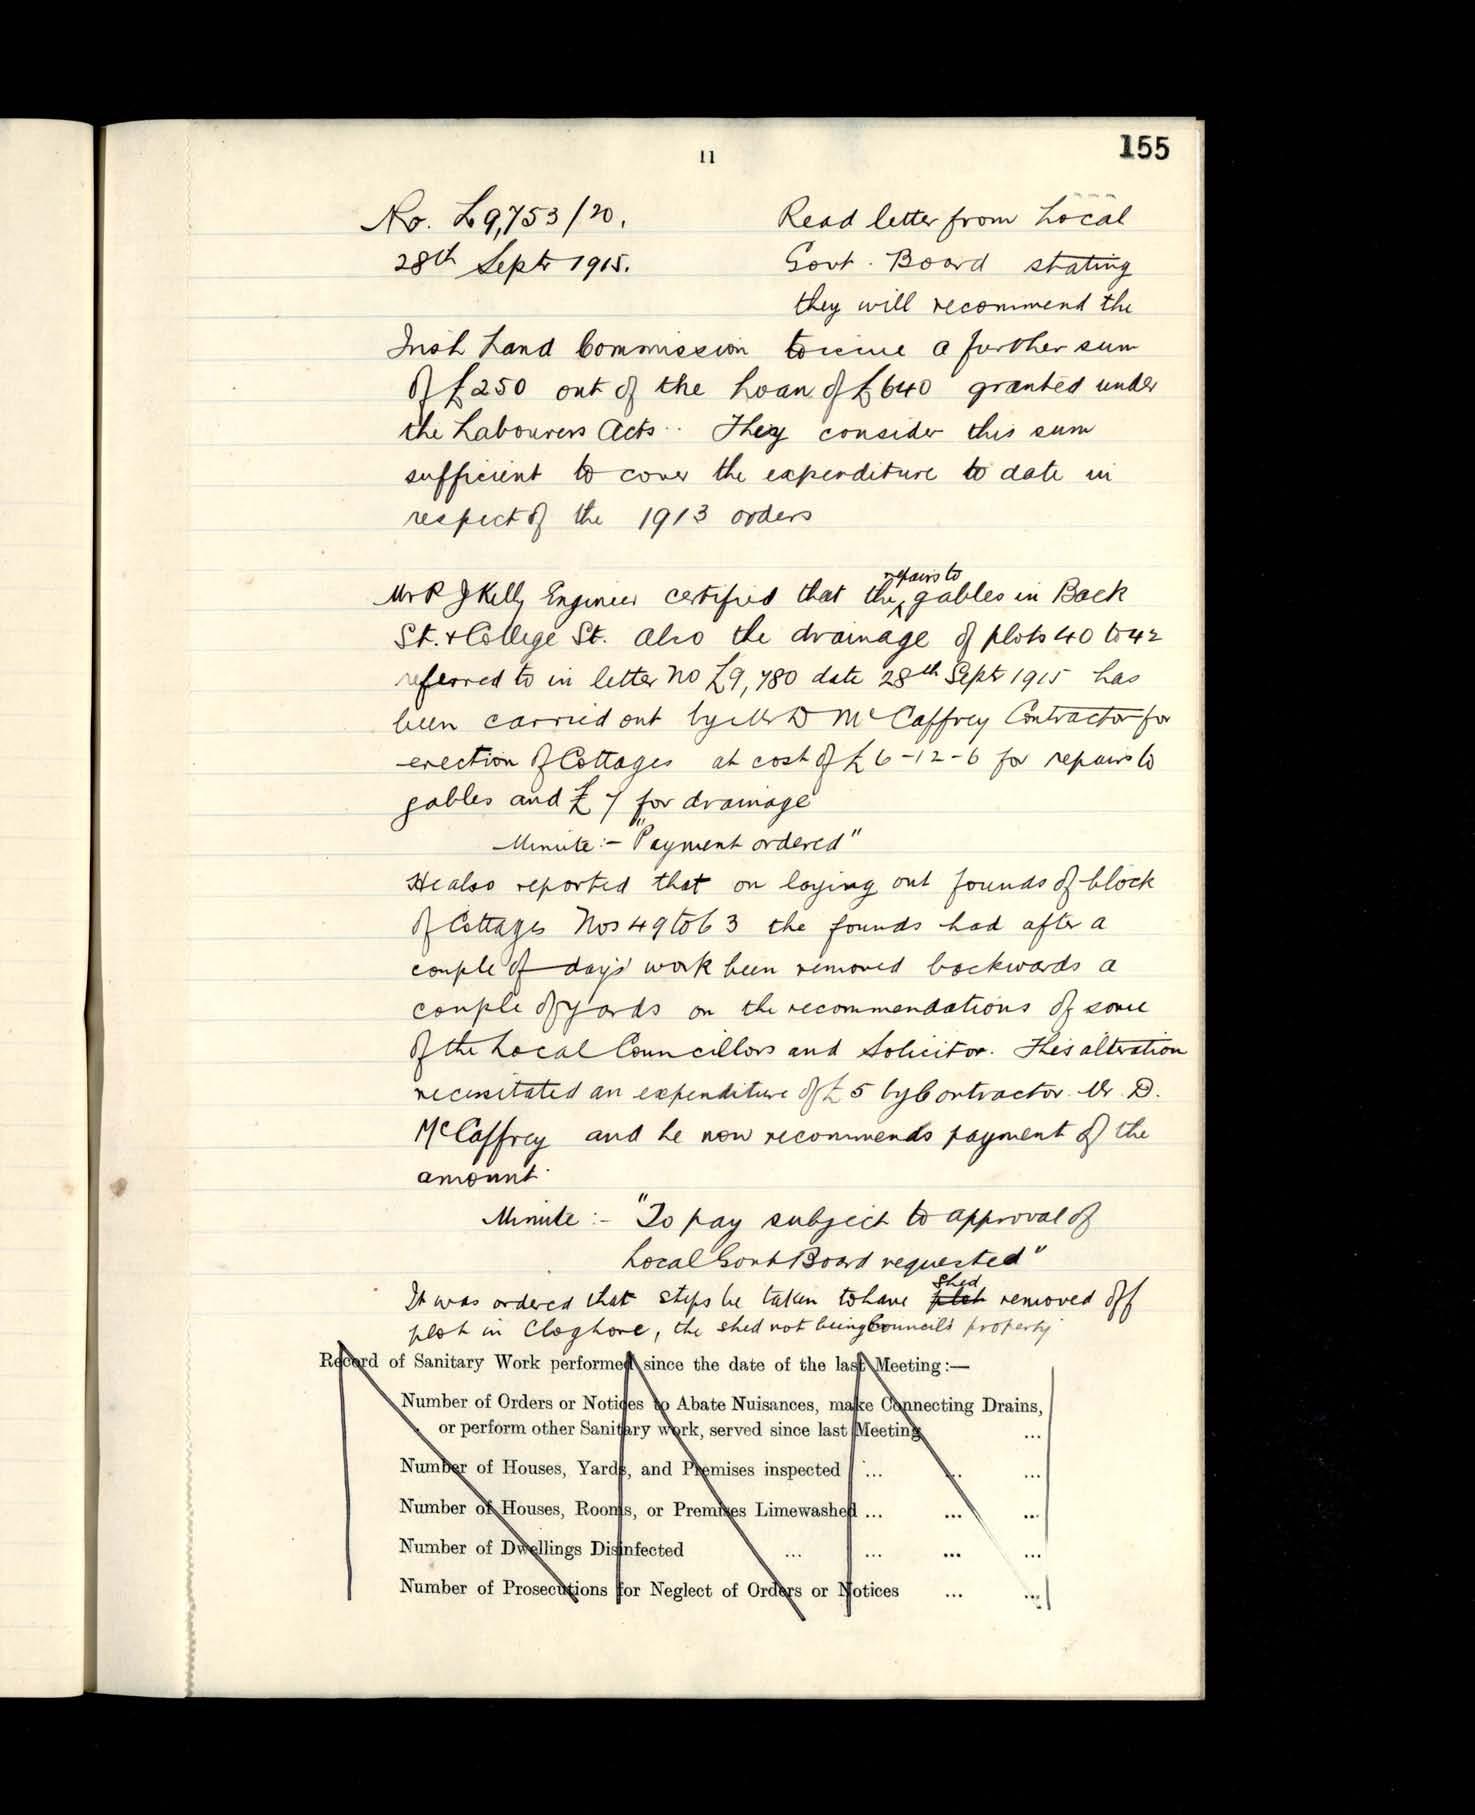 11
155
No. L9,753/20. Read letter from Local
28th Septr 1915. Govt. Board stating
they will recommend the
Irish Land Commission to issue a further sum
of £250 out of the Loan of £640 granted under
the Labourers Acts. They consider this sum
sufficient to cover the expenditure to date in
respect of the 1913 orders
Mr P J Kelly Engineer certified that the repairs to gables in Back
St. & College St. also the drainage of plots 40 to 42
referred to in letter No L9,780 date 28th Septr 1915 has
been carried out by Mr D McCaffrey Contractor for
erection of Cottages at cost of £6-12-6 for repairs to
gables and £7 for drainage
Minute:- "Payment ordered"
He also reported that on laying out founds of block
of Cottages Nos 49 to 63 the founds had after a
couple of days' work been removed backwards a
couple of yards on the recommendations of some
of the Local Councillors and Solicitor. This alteration
necessitated an expenditure of £5 by Contractor Mr. D.
McCaffrey and he now recommends payment of the
amount.
Minute:- "To pay subject to approval of
Local Govt Board requested"
It was ordered that steps be taken to have shed removed off
plot in Cloghore, the shed not being Council's property
Record of Sanitary Work performed since the date of the last Meeting:—
Number of Orders or Notices to Abate Nuisances, make Connecting Drains,
or perform other Sanitary work, served since last Meeting ...
Number of Houses, Yards, and Premises inspected ... ... ...
Number of Houses, Rooms, or Premises Limewashed ... ... ...
Number of Dwellings Disinfected ... ... ... ...
Number of Prosecutions for Neglect of Orders or Notices ... ...